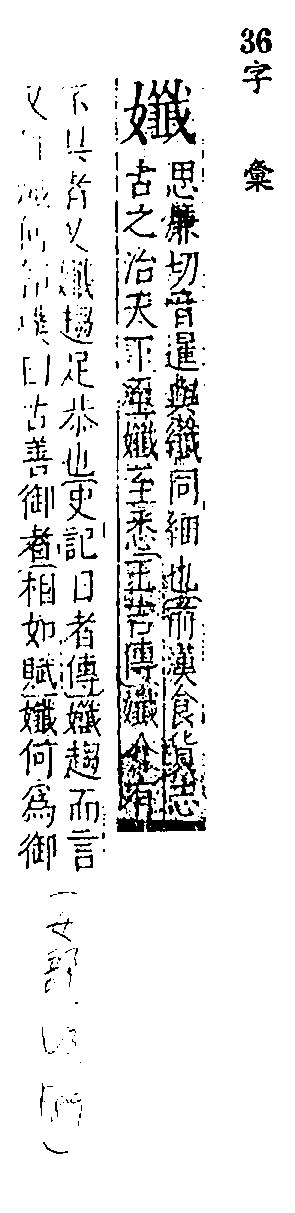 36字彙
孅
思廉切音暹與纖同細也前漢食貨志
古之治天下至孅至悉王吉傳孅介有
不具者又孅趨足恭也史記日者傳孅趨而言
曰古善御者相如賦孅何爲御
(女部